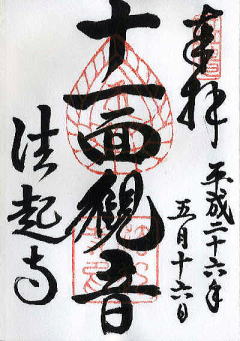 奉拝
平成二十六年
五月十六日
十一面観音
法起寺